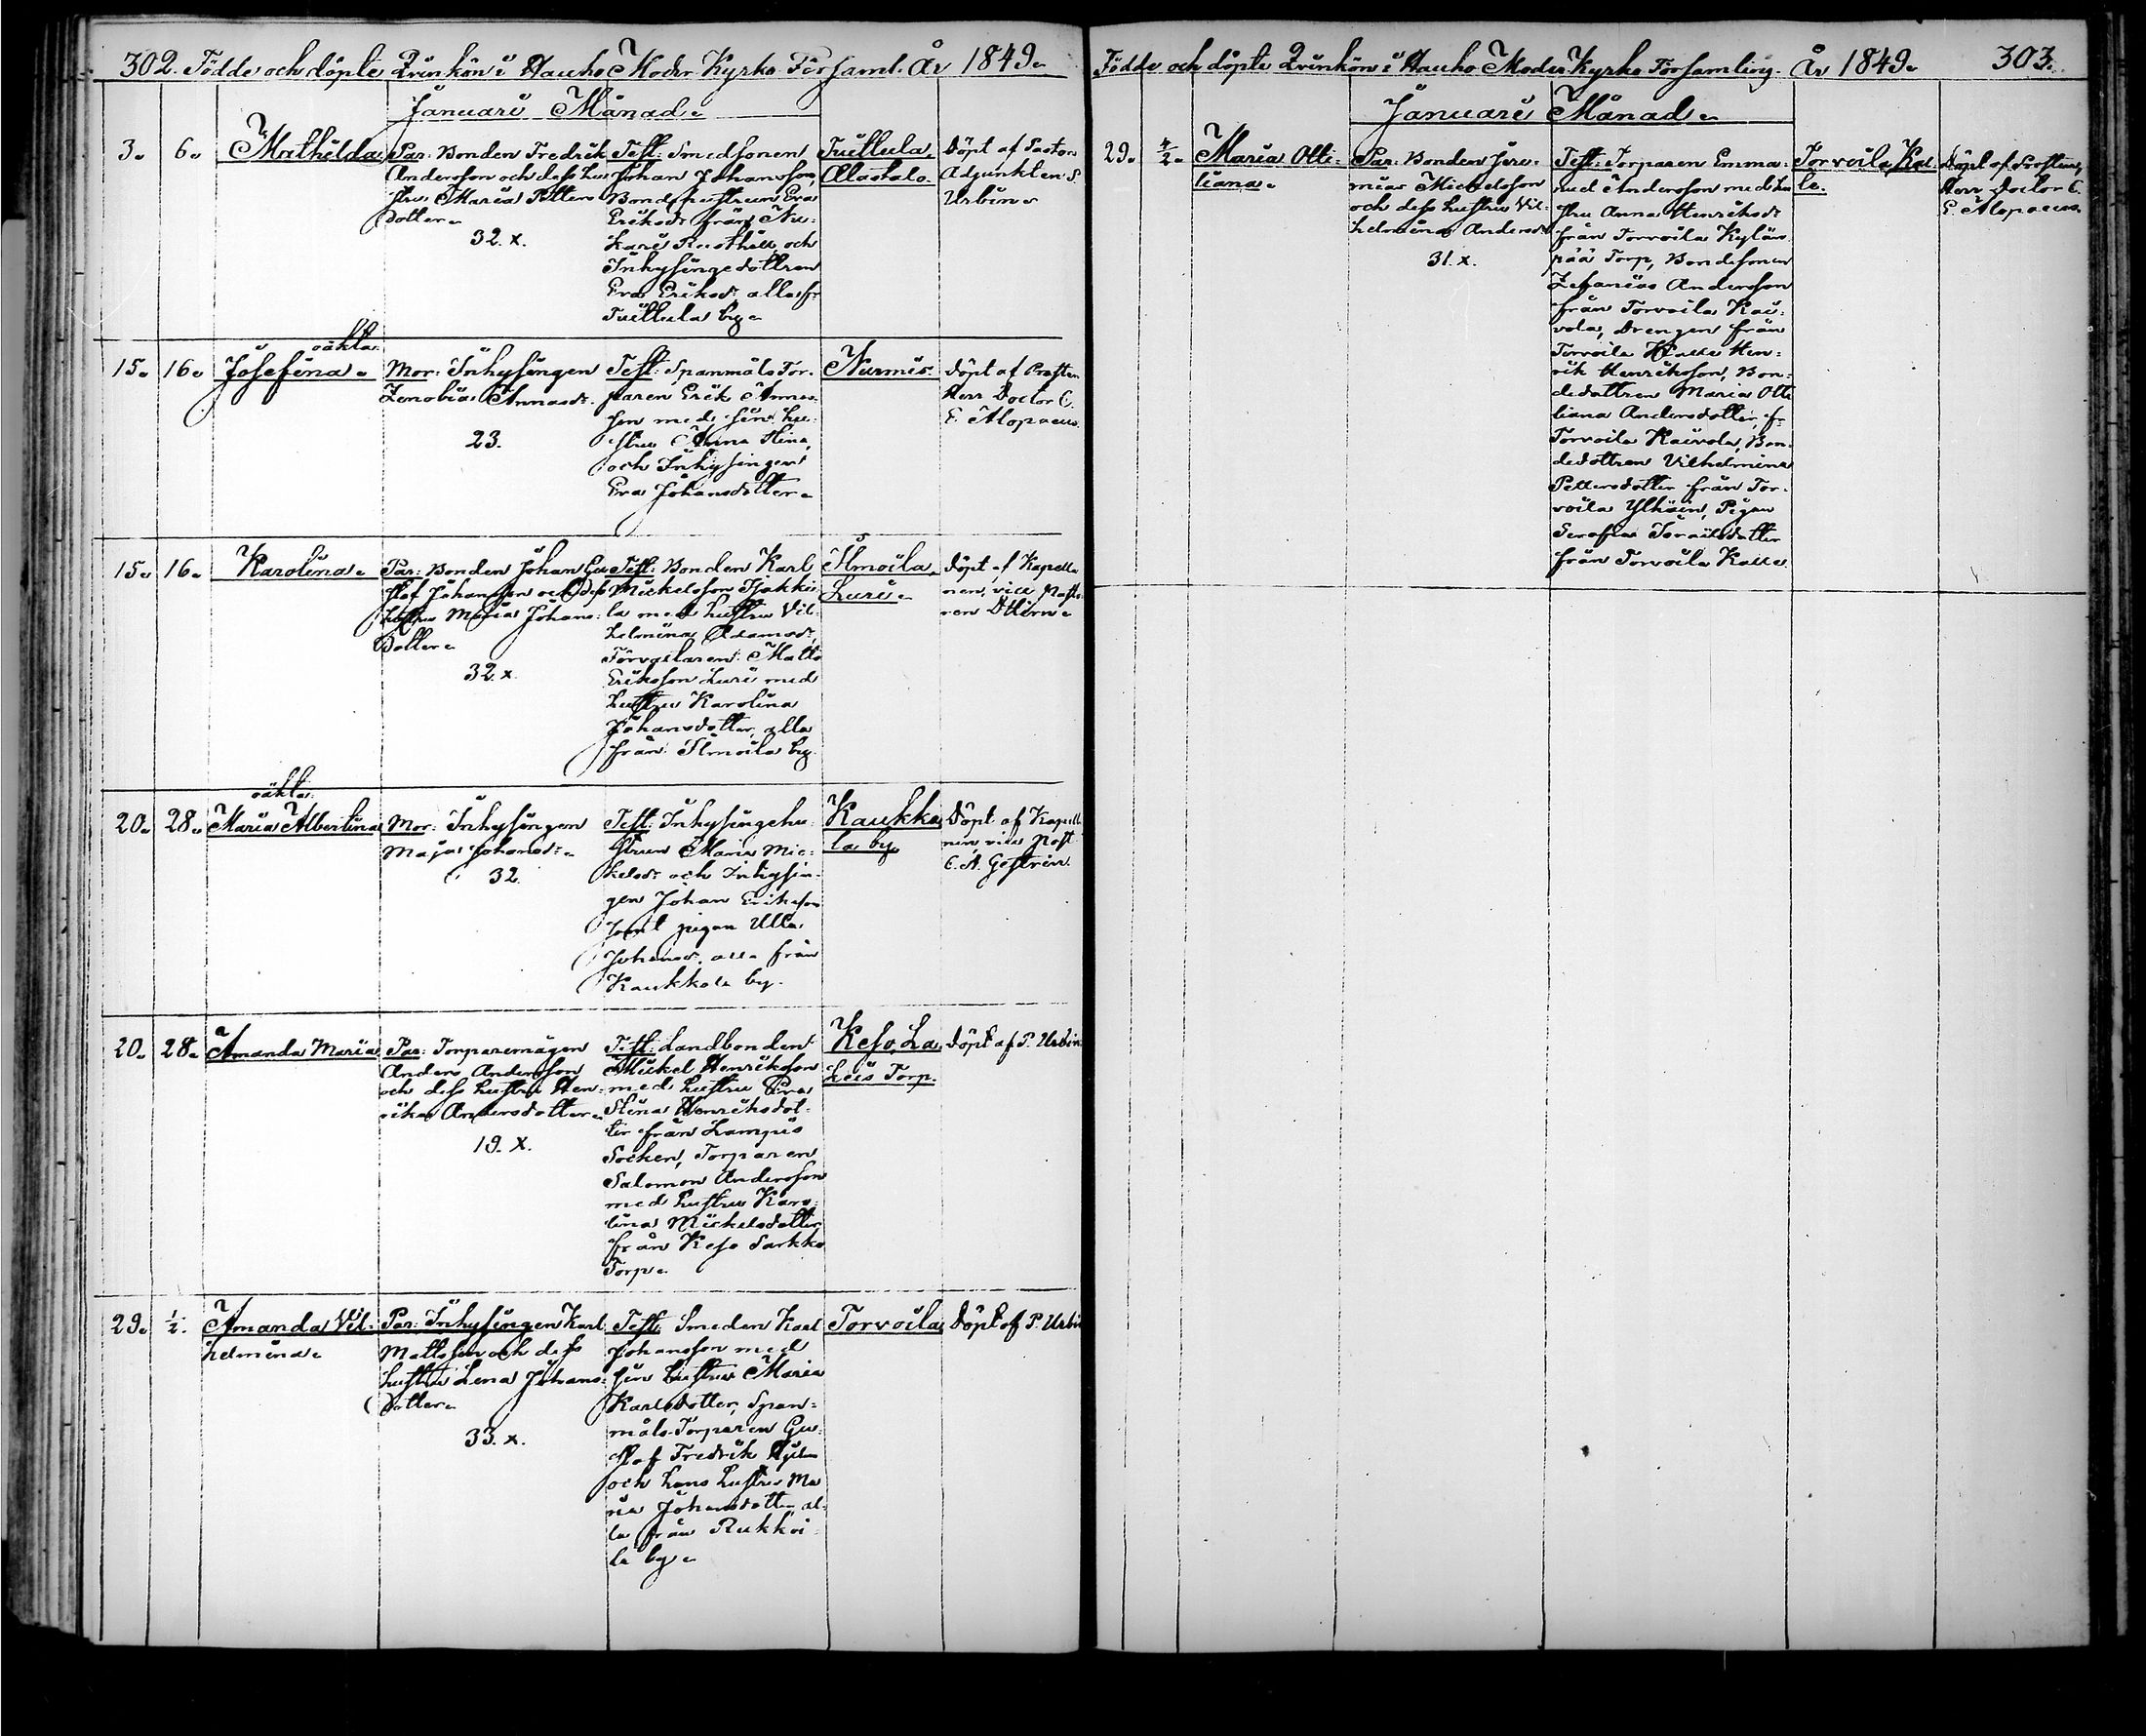 302. Födde och döpte Qvinkön i Hauho Moder Kyrko Församl. År 1849.
Januari Månad.
3. 6. Mathilda.
Par: Bonden Fredrik
Andersson och dess hu
stru Maria Petters
dotter.
32. x.
Test: Smedsonen
Johan Johansson,
Bondhustrun Eva
Eriksdr från
och
Inhysingedottren
Eva Eriksdr alla fr.
Tuittula by.
Tuittula,
Alastalo.
Döpt af Pastors
Adjunkten S.
Urbin.
oäkta.
15. 16. Josefina.
Mor: Inhysingen
Zenobia Annasdr.
23.
Test: Spanmåls Tor-
paren Erik Anners-
son med sin hu-
stru Anna Stina,
och Inhysingen
Eva Johansdotter.
Nurmis.
Döpt af Prosten
Herr Doctor C.
E. Alopaeus.
15. 16. Karolina.
Par: Bonden Johan Gu
staf Johansson och dess
hustru Maria Johans:
Dotter.
32. x.
Test: Bonden Karl
Mickelsson Sjakki
la med hustru Vil-
helmina Adamsdr,
Förvaltaren: Matts
Eriksson Luri med
hustru Karolina
Johansdotter, alla
från Ilmoila by.
Ilmoila,
Luri.
Döpt af Kapella
nen, vice Past-
oren Ahlren.
oäkta:
20. 28. Maria Albertina
Mor: Inhysingen
Maja Johansdr.
32.
Test: Inhysingehu-
strun Maria Mic-
kelsdr och Inhysin-
gen Johan Eriksson
samt pigan Ulla
Johansd. alla från
Kaukkola by.
Kaukko
la by.
Döpt af Kapella
nen, vice Past
C. A. Gestrin.
20. 28. Amanda Maria
Par: Torparemågen
Anders Andersson
och dess hustru Hen-
rika Andersdotter.
19. x.
Test: Landbonden
Mickel Henriksson
med hustru Eva
Stina Henriksdot-
ter från Lampis
Socken, Torparen
Salomon Andersson
med hustru Karo-
lina Mickelsdotter
från Keso Sarkko
Torp.
Keso, La
Torp.
Döpt af P. Urbin.
29. 1/2. Amanda Vil-
helmina.
Par: Inhysingen Karl
Mattsson och dess
hustru Lena Johans-
Dotter.
33. x.
Test: Smeden Karl
Johansson med
sin hustru Maria
Karlsdotter, Span-
måls-Torparen Gu-
staf Fredrik
och hans hustru Ma
ria Johansdotter, al-
la från Rukkoi-
la by.
Torvoila
Döpt af P. Urbin
Födde och döpte Qvinkön i Hauho Moder Kyrko Församling. År 1849. 303.
Januari Månad.
29. 4/2. Maria Otti-
liana.
Par: Bonden Jere-
mias Mickelsson
och dess hustru Vil-
helmina Andersdr
31. x.
Test: Torparen Emma-
nuel Andersson med hu
stru Anna Henriksdr
från Torvoila Kylän-
pää Torp, Bondesonen
Zefanias Andersson
från Torvoila Kai-
vola, Drengen från
Torvoila Kalle Hen-
rik Henriksson, Bon-
dedottren Maria Otti
liana Andersdotter, fr.
Torvoila Kaivola, Bon-
dedottren Vilhelmina
Pettersdotter från Tor-
voila Ylhäin, Pigan
Serafia Israilsdotter
från Torvoila Kalle.
Torvoila, Kal-
le.
Döpt af Prosten,
Herr Doctor C.
E. Alopaeus.